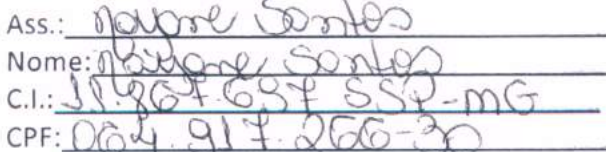 Ass.: Nayane Santos
Nome: Nayane Santos
C.I.: 11.867.657 SSP-MG
CPF: 064.917.266-30